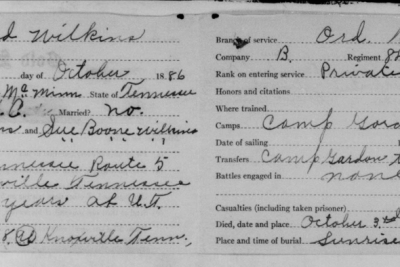 d Wilkins
day of October 1886
McMinn State of Tennessee
C. Married? no.
and Sue Boone Wilkins
nnessee Route 5
ville Tennessee
years at U.T.
Knoxville Tenn.,
Branch of service Ord.
Company B. Regiment 8
Rank on entering service Private
Honors and citations
Where trained
Camps Camp Gord
Date of sailing
Transfers Camp Gordon
Battles engaged in none
Casualties (including taken prisoner)
Died, date and place October 3rd
Place and time of burial Sunrise